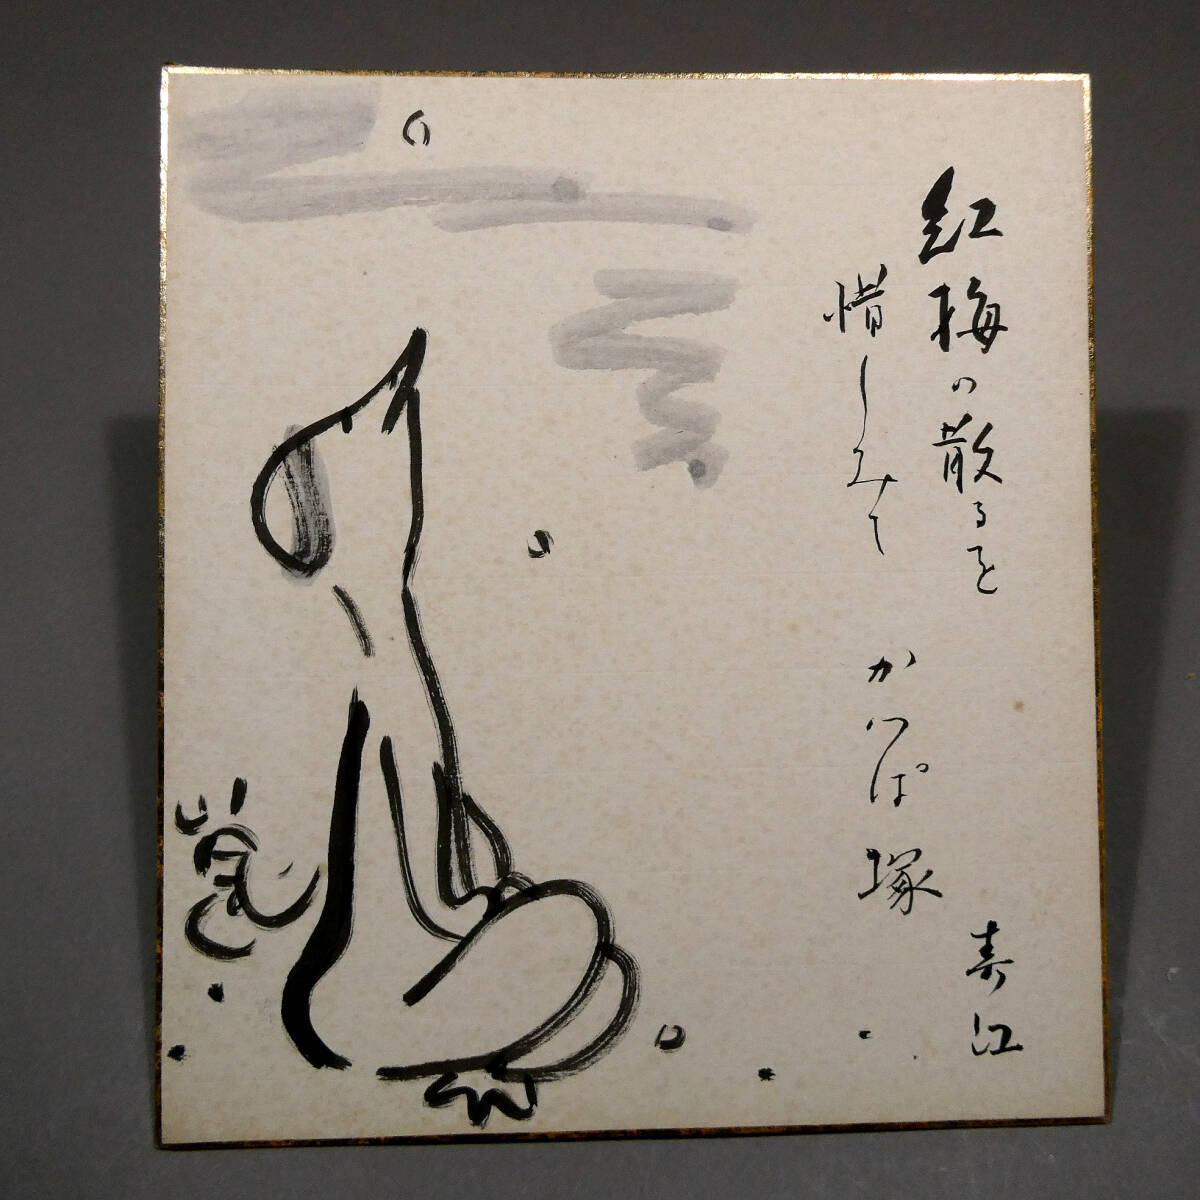 紅梅の散るを
惜しみて
かっぱ塚
寿江